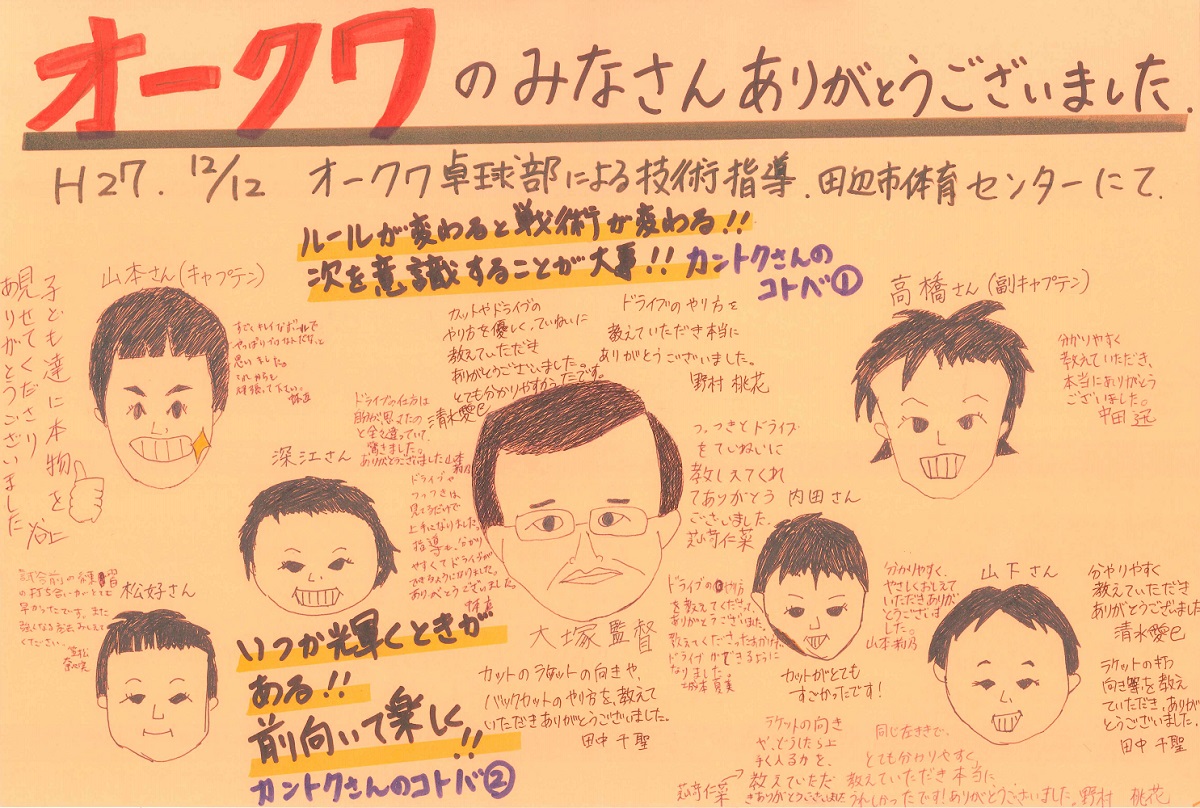 オークワのみなさんありがとうございました.
H27. 12/12 オークワ卓球部による技術指導.田辺市体育センターにて.
ルールが変わると戦術が変わる!!
次を意識することが大事!! カントクさんの
コトバ①
山本さん(キャプテン)
子ども達に本物を
見せてくださり
ありがとうございました
すごくキレイなボールで
やっぱりプロなんだなって
思いました。
これからも
頑張って下さい。
カットやドライブの
やり方を優しく、ていねいに
教えていただき
ありがとうございました。
とても分かりやすかったです。
清水愛巳
ドライブのやり方を
教えていただき本当に
ありがとうございました。
野村 桃花
高橋さん(副キャプテン)
分かりやすく
教えていただき、
本当にありがとう
ございました。
中田
深江さん
ドライブの仕方は
自分が思ってたの
と全く違っていて、
驚きました。
ありがとうございました
ドライブや
ツッツきは
見てるだけで
上手になりました。
指導も、分かり
やすくてドライブが
できるようになりました。
ありがとうございました。
つっつきとドライブ
をていねいに
教しえてくれ
てありがとう
ございました。
芝崎仁菜
内田さん
カットがとても
すごかったです!
松好さん
試合前の練習
の打ち合いがとても
早かったです。また
強くなる方法、おしえて
ください。
大塚監督
いつか光輝くときが
ある!!
前向いて楽しく!!
カントクさんのコトバ②
カットのラケットの向きや、
バックカットのやり方を、教えて
いただきありがとうございました。
田中 千聖
ドライブのやり方
を教えてくださって、
ありがとうございました。
教えてくださったおかげで、
ドライブができるように
なりました。
城本 夏美
分かりやすく、
やさしくおしえて
いただきありが
とうございま
した。
山本莉乃
山下さん
分やりやすく
教えていただき
ありがとうございました
清水愛巳
ラケットの打つ
向き等を教え
ていただき、ありが
とうございました。
田中 千聖
ラケットの向き
や、どうしたら上
手く入るかを、
教えていただ
きありがとうございました
芝崎仁菜
同じ左ききで、
とても分わりやすく、
教えていただき本当に
うれしかったです!ありがとうございました。野村 桃花